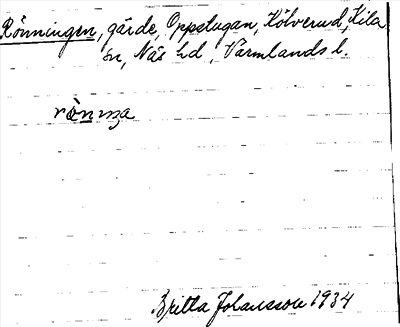 Rönningen, gärde, Oppstugan, Kölverud, Kila
sn, Näs hd, Värmlands l.
Britta Johansson 1934